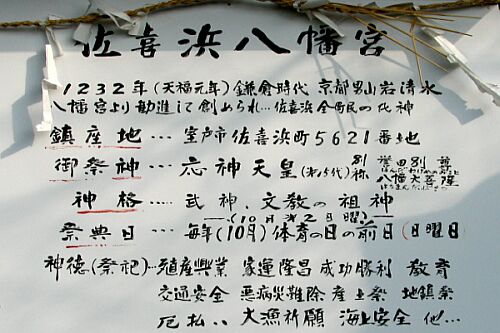 佐喜浜八幡宮
1232年(天福元年)鎌倉時代 京都男山岩清水
八幡宮より勧進して創められ…佐喜浜全町民の氏神
鎮座地…室戸市佐喜浜町5621番地
御祭神…応神天皇(第15代)別称 誉田別尊
ほんだわけのみこと
八幡大菩薩
はちまんだいぼさつ
神格…武神、文教の祖神
(10月第2日曜)
祭典日…毎年(10月)体育の日の前日(日曜日
神徳(祭祀)…殖産興業 家運隆昌 成功勝利 教育
交通安全 悪病災難除 産土祭 地鎮祭
厄払い 大漁祈願 海上安全 他…